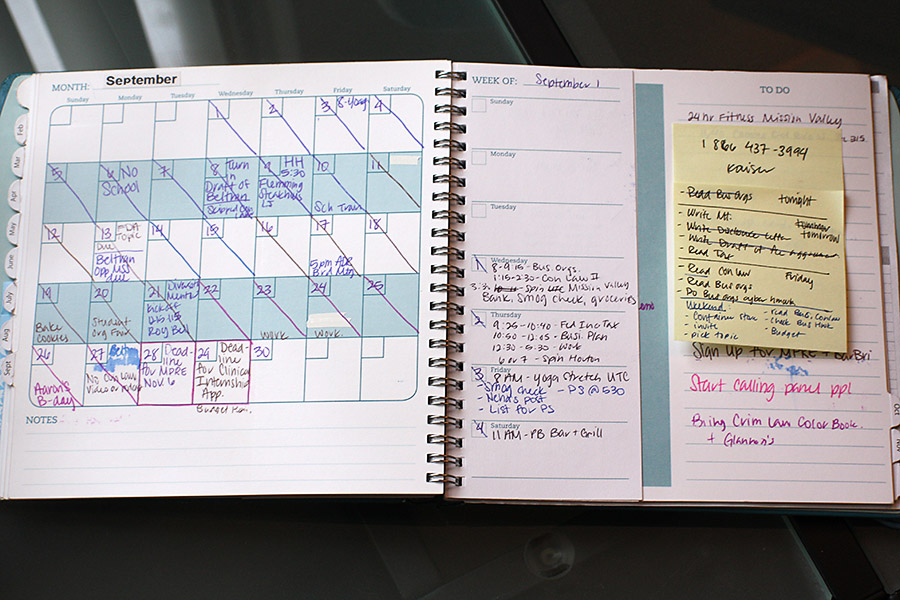 MONTH: September
Sunday Monday Tuesday Wednesday Thursday Friday Saturday
1 2 3 8-Yoga 4
5 6 No School 7 8 Turn in Draft of Beltran 9 HH 5:30 Flemming 10 Sch Train 11
12 13 Topic Due Beltran Opp. Due 14 15 16 17 5pm 18
19 Bake Cookies 20 Student Org Fair 21 Kickoff Roy Bell 22 23 Work 24 Work 25
26 Aaron's B-day 27 No Con Law Video 28 Dead-line for MPRE Nov. 6 29 Dead-line for Clinical Internship App. 30
Budget
NOTES
Feb
Mar
Apr
May
June
July
Aug
Sept
WEEK OF: September 1
Sunday
Monday
Tuesday
Wednesday
1 8-9:15 - Bus Orgs.
1:15-2:30 - Con Law II
Mission Valley
Bank, Smog check, groceries
Thursday
2 9:25-10:40 - Fed Inc Tax
Busi. Plan
12:30-5:30 - Work
6 or 7 - Spin
Friday
3 8 AM - yoga Stretch UTC
- Smog Check - PS @ 530
- Neha's post
- List for PS
Saturday
4 11 AM - PB Bar + Grill
TO DO
24 hr Fitness Mission Valley
1 866 437-3994
Kaiser
- Read Bus Orgs tonight
- Write
- Write Disclosure Letter tomorrow
- Write Draft of
- Read Tax
- Read Con law Friday
- Read Bus orgs
- Do Bus orgs
Weekend
- Container Store
- invite
- pick topic
- Budget
Sign Up for MPRE + BarBri
Start calling panel ppl
Bring Crim Law Color Book
+ Glannon's
Oct
Nov